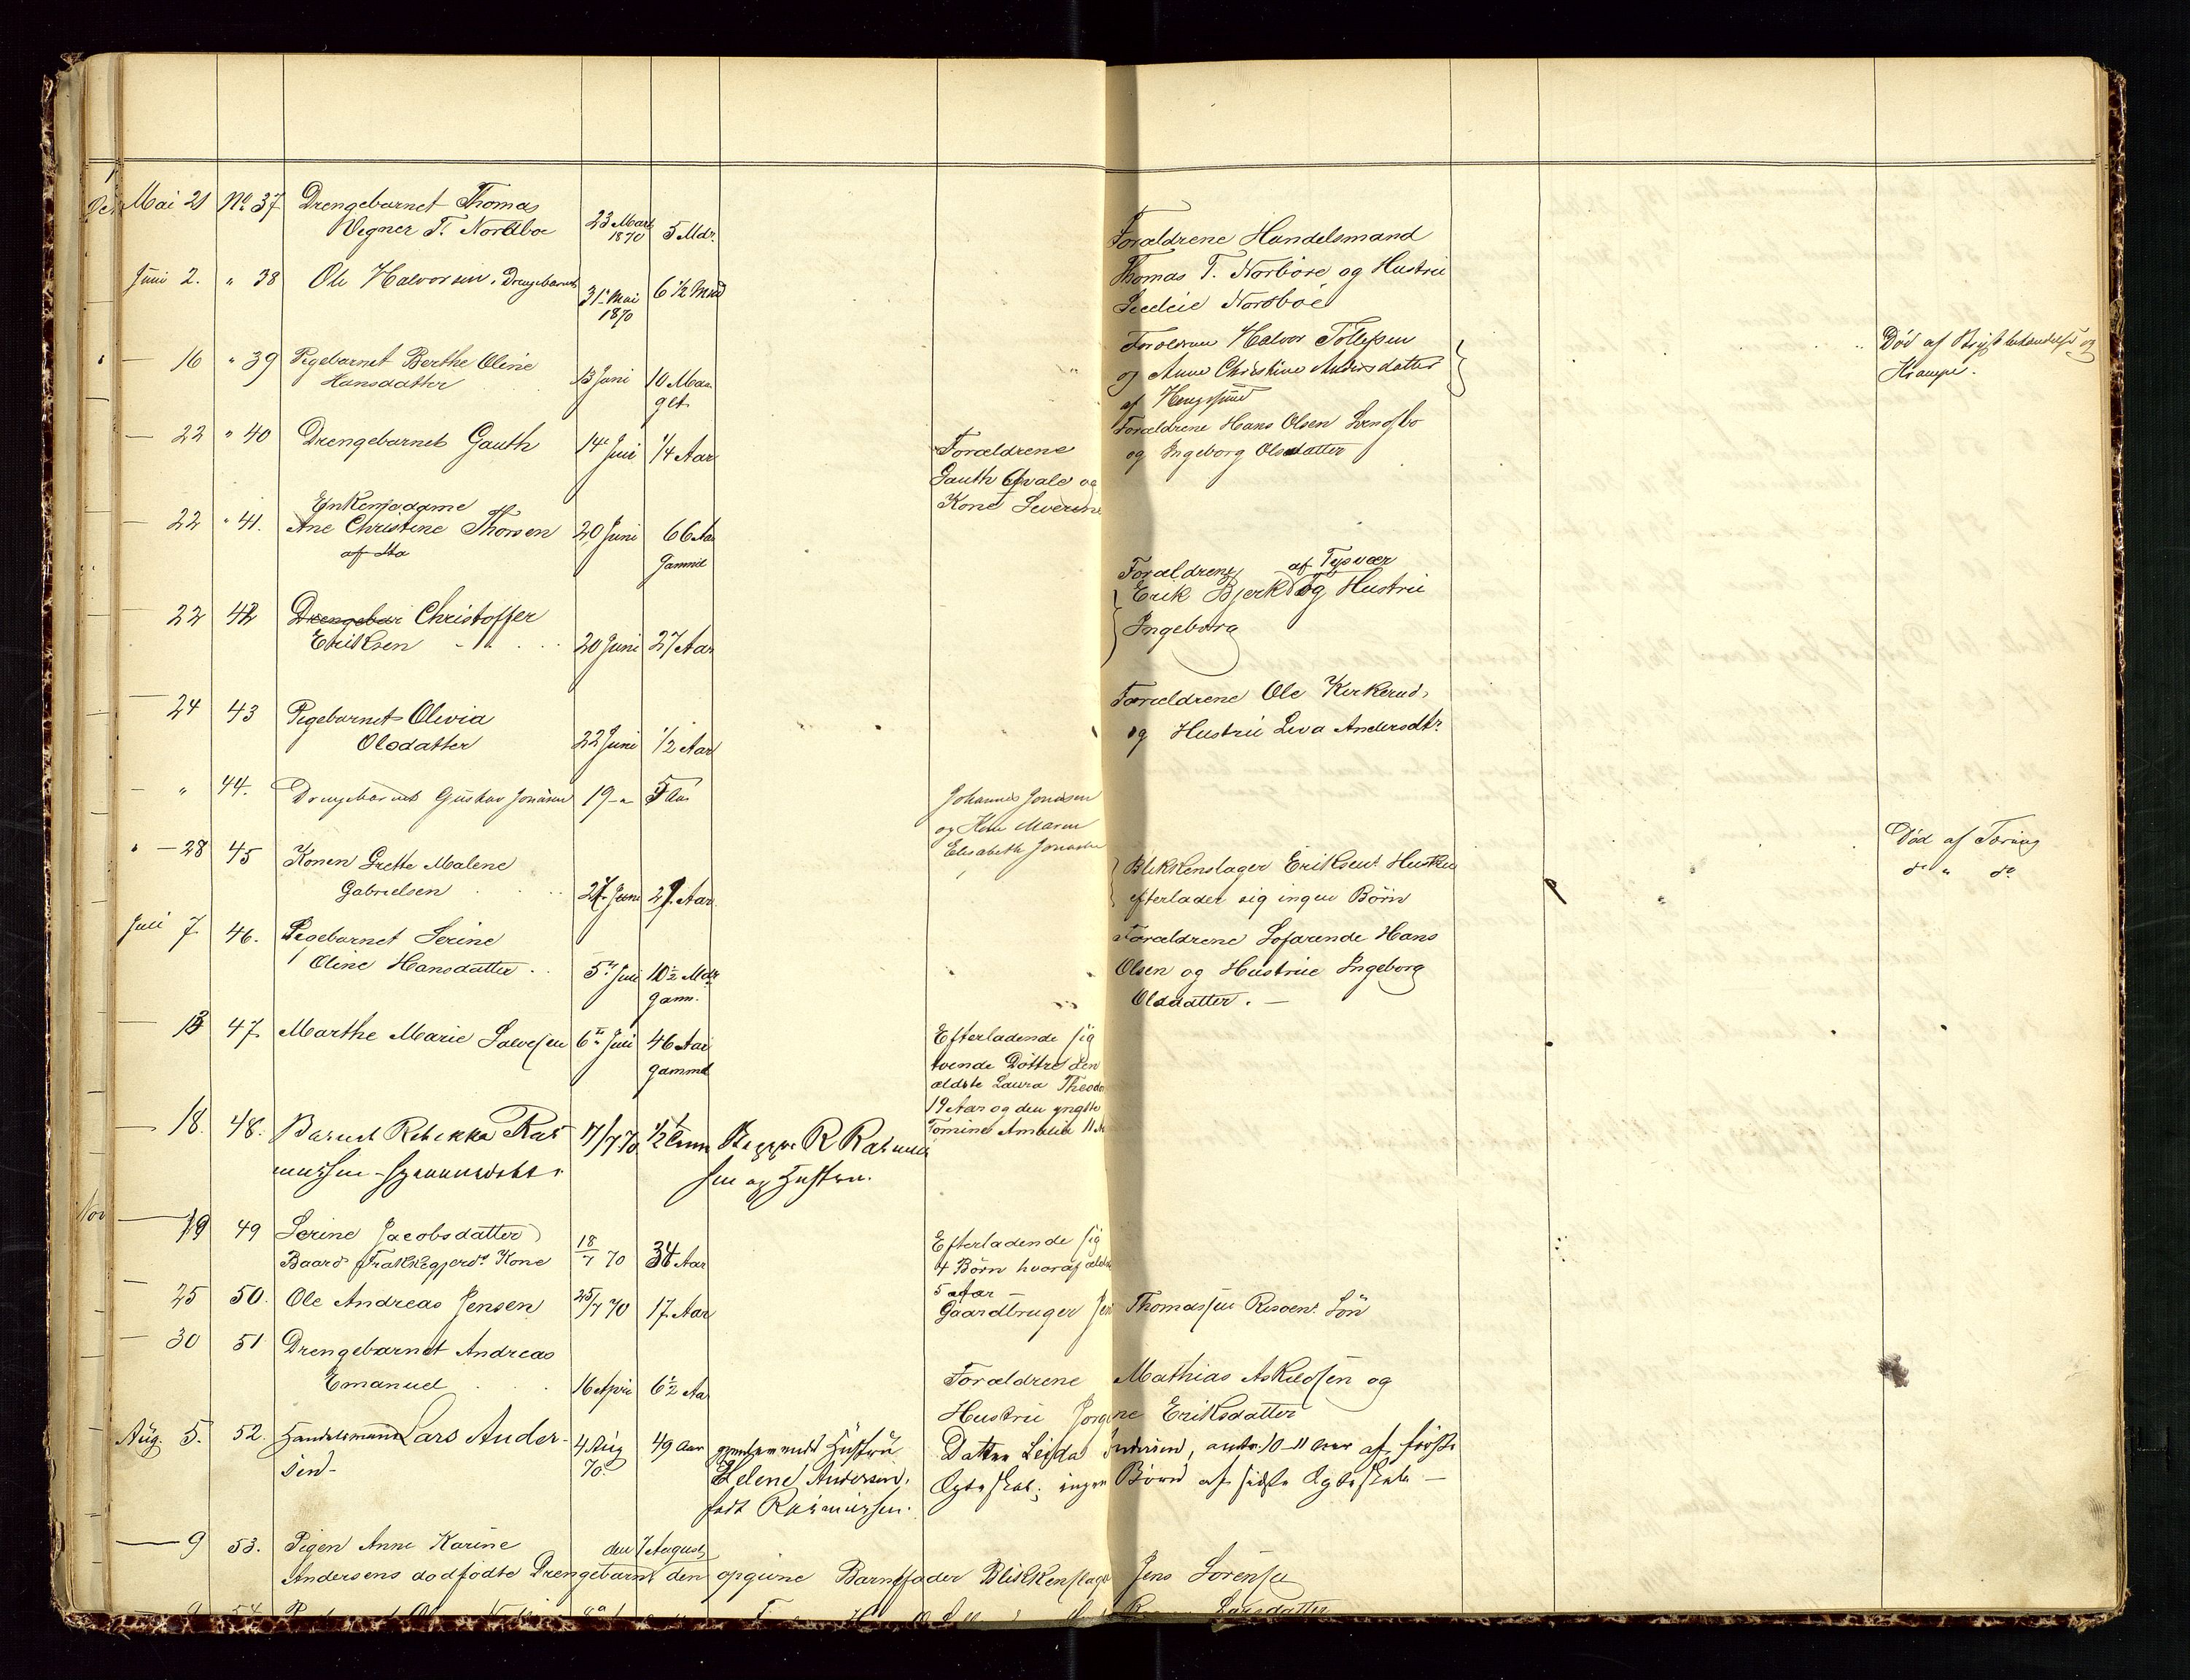 Mai 21 No 37 Drengebarnet Thomas
Wegner T. Nordboe 23 Marts 1870 5 Mdr.
Forældrene Handelsmand
Thomas T. Norböe og Hustrü
Nordböe
Juni 2. " 38 Ole Halvorsen, Drengebarnet 31te Mai 1870 6 1/2 Mnd
Halvor Tollefsen
og Anne Christine Andersdatter
af
Død af
Krampe.
— 16 " 39 Pigebarnet Berthe Oline
Hansdatter 13 Juni 10 Maa.
glt.
Forældrene Hans Olsen
og Ingeborg Olsdatter
— 22 " 40 Drengebarnet Gauth 14de Juni 1/4 Aar
Forældrene
Gauth Qvale og
Kone Severine
Enkemadame
— 22 " 41. Ane Christine Thorsen 20 Juni 66 Aar
Gammel
22 42 Drengebar Christoffer
Eriksen 20 Juni 27 Aar
Forældrene af Tysvær
Erik Bjerk og Hustrü
Ingeborg
— 24 43 Pigebarnet Olivia
Olsdatter 22 Juni 1/2 Aar
Forældrene Ole
og Hustrü Andersdtr
— " 44. Drengebarnet Gustav Jonasen 19 — " 5 Aar
Johannes Jonasen
og Kone Maren
Elisabeth Jonasen
Død af Tæring
do " do
— 28 45 Konen Grethe Malene
Gabrielsen 27 Juni 29 Aar
Blikkenslager Eriksens Hustru
efterlader sig ingen Börn
Juli 7 46. Pigebarnet Serine
Oline Hansdatter 5te Juli 10 1/2 Mdr
gamm.
Forældrene Söfarende Hans
Olsen og Hustrüe Ingeborg
Olsdatter. —
— 13 47. Marthe Marie Salvesen 6te Juli 46 Aar
gammel
Efterladende sig
tvende Döttre den
ældste Laura Theodo
19 Aar og den yngste
Tomine Amalia 11 A
— 18. 48. Barnet Rebekka Ras-
mussen 17/7 70 1/2 R Rasmus
sen og Hustru.
— 19 49 Serine Jacobsdatter
Baard Frakkegjerds Kone 18/7 70 34 Aar
Efterladende sig
4 Börn hvoraf ældst
5 Aar —
25 50. Ole Andreas Jensen 25/7 70 17 Aar
Gaardbruger Jens Thomassen Sön
— 30 51 Drengebarnet Andreas
Emanuel 16 April 6 1/2 Aa
Forældrene Mathias Askildsen og
Hustrü Jorgine Eriksdatter
Aug. 5. 52. Handelsmand Lars Ander-
sen- 4 Aug 70. 49 Aar
Hustru
Helene Andersen,
født Rasmussen.
Datter Andersen, 10-11 Aar af første
Ægteskab; ingen Børn af sidste Ægteskab —
— 9 53. Pigen Anne Karine den 7 August
Andersens dodfödte Drengebarn den opgivne Barnefader Blikkenslager Jens Sörensen
Larsdatter